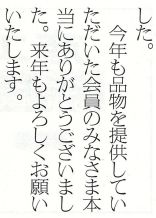 した。
　今年も品物を提供してい
ただいた会員のみなさま本
当にありがとうございまし
た。来年もよろしくお願い
いたします。